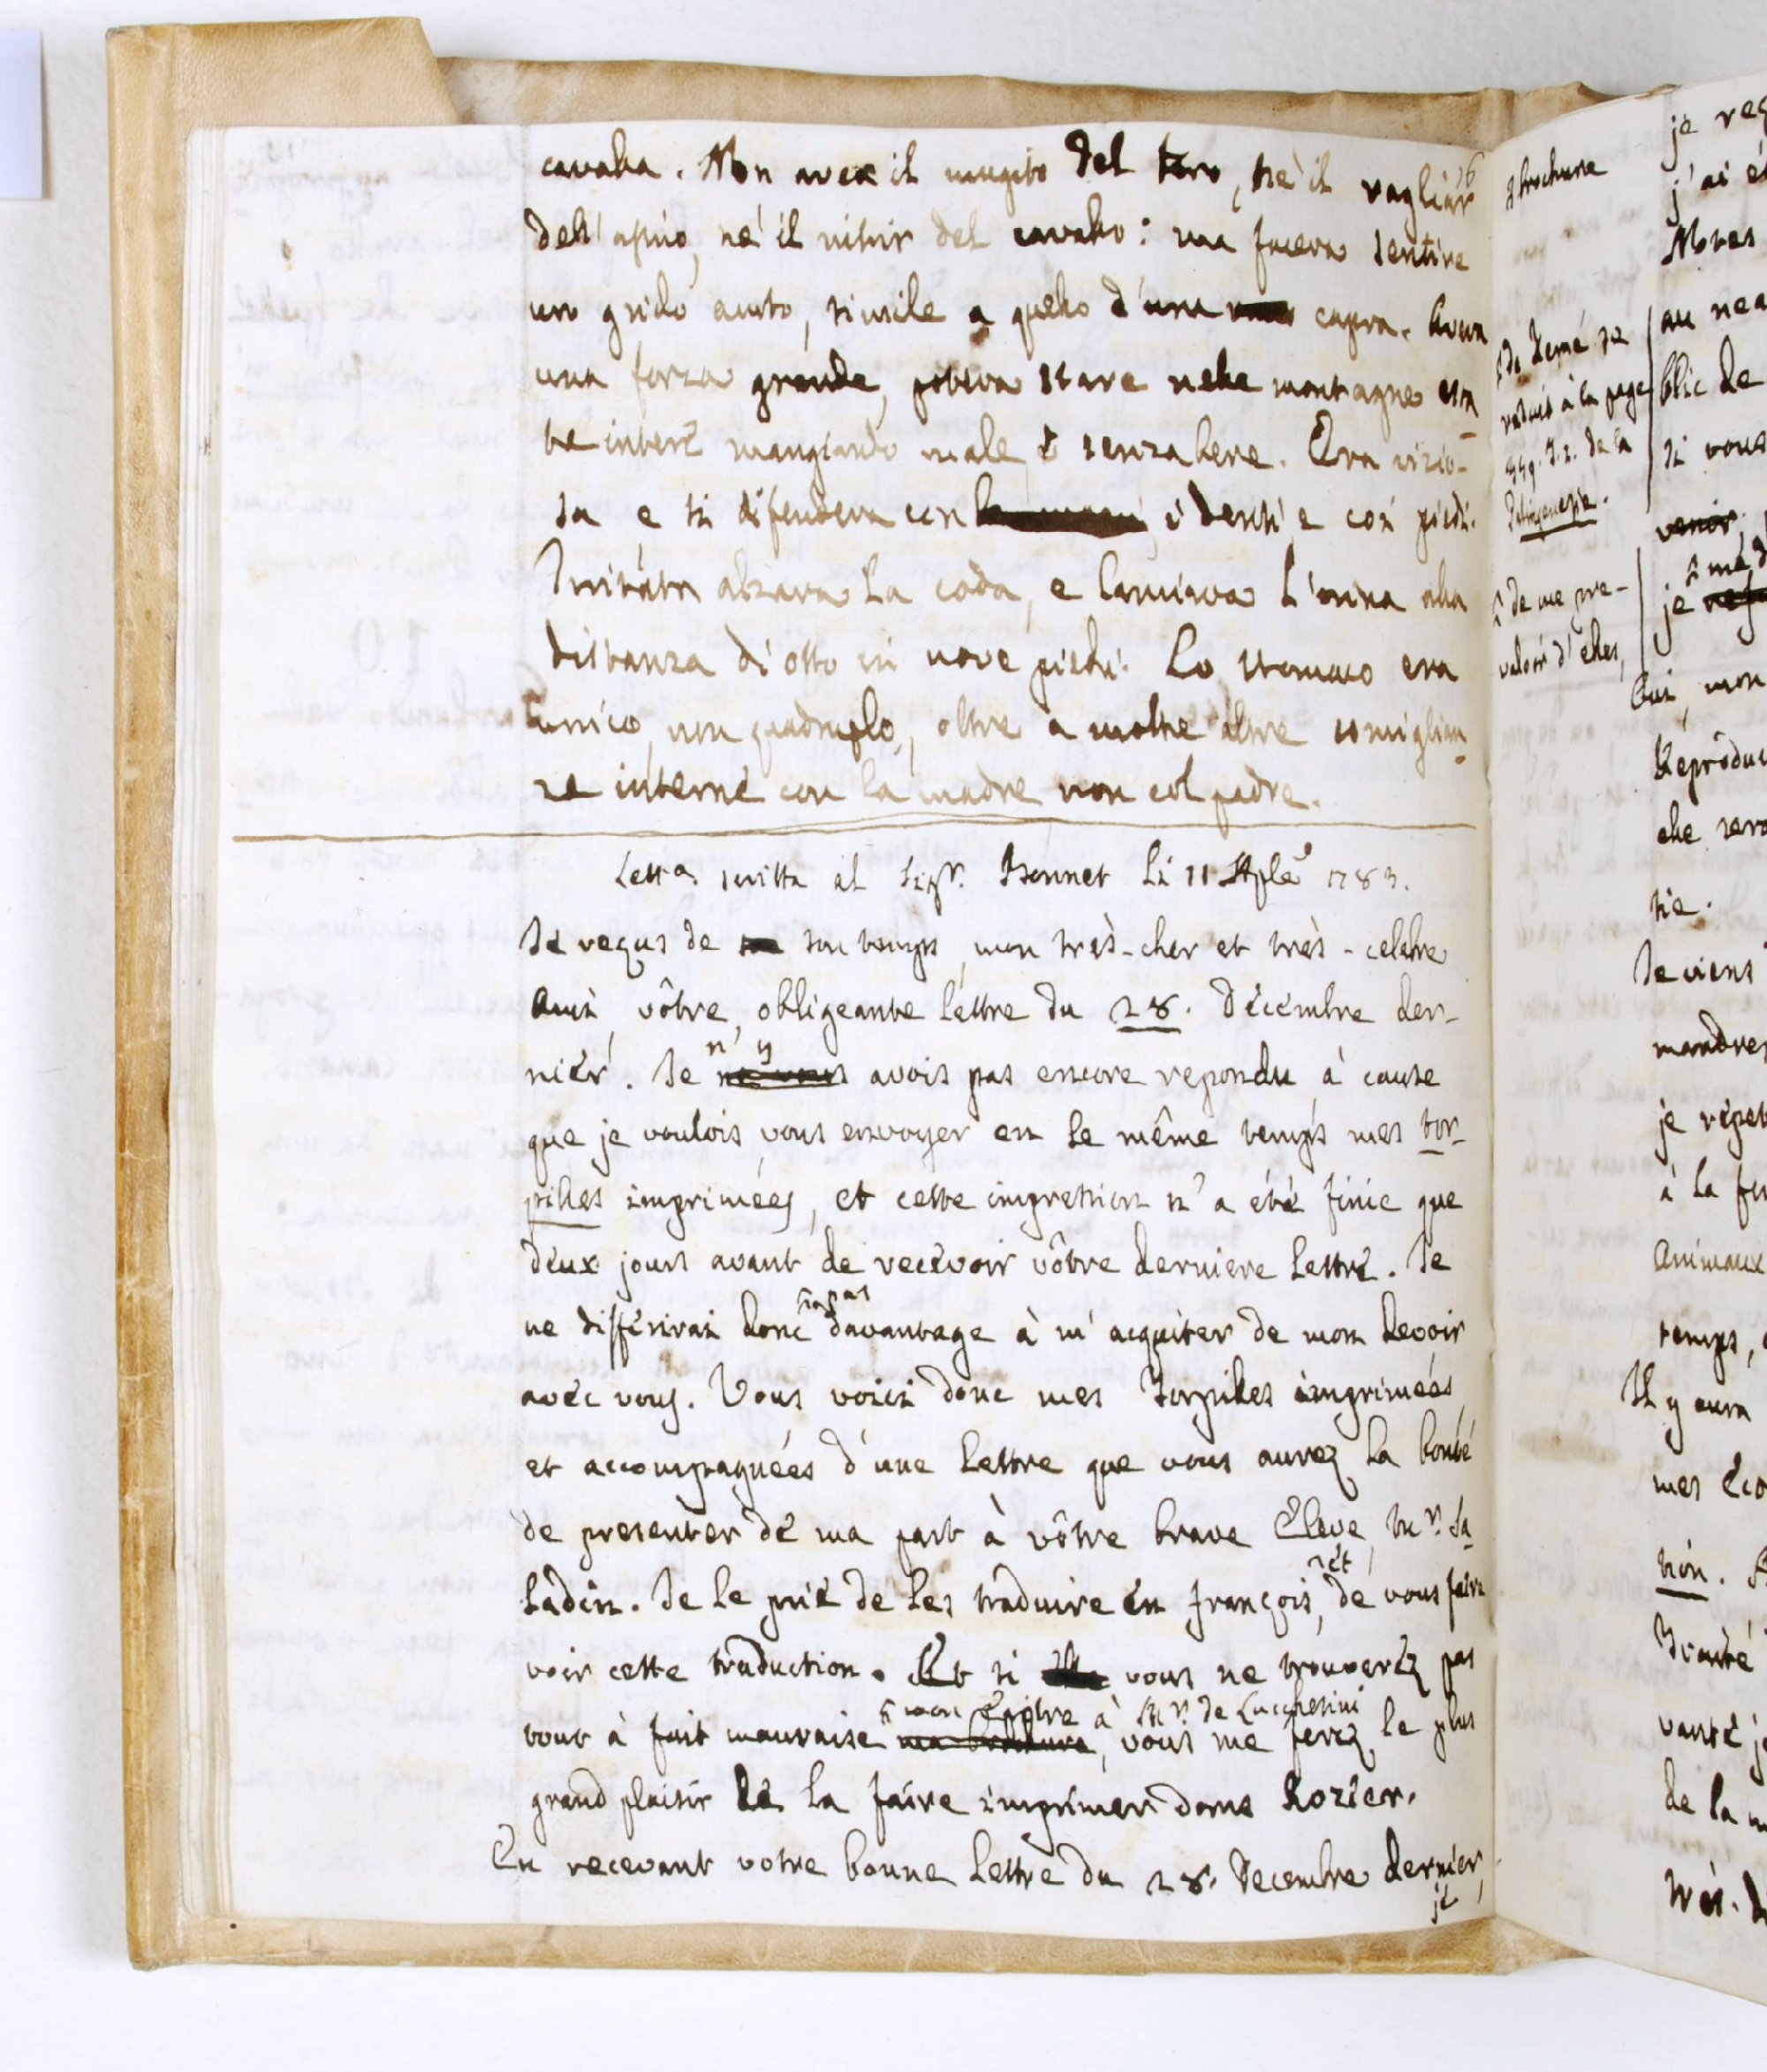 cavalla. Non avea il mugito del toro, nè il ragliar
dell'asino, nè il nitrir del cavallo: ma faceva sentire
un grido acuto, simile a quello d'una capra. Aveva
una forza grande, poteva stare nelle montagne esta
te intere mangiando male e senza bere. Era vizio-
sa e si difendeva con i denti e coi piedi.
Irritata alzava la coda, e lanciava l'orina alla
distanza di otto in nove piedi. Lo stomaco era
unico, non quadruplo, oltre a molte altre somiglian
ze interne con la madre non col padre.
Lett.a scritta al Sig.r Bonnet li 11 Aple 1783.
Je reçus de son temps, mon très-cher et très-celebre
Ami, vôtre obligeante lettre du 28. Décembre der-
niér. Je n'y ne vous avois pas encore repondu à cause
que je voulois vous envoyer en le même temps mes tor-
pilles imprimées, et cette impression n'a été finie que
deux jours avant de recevoir vôtre derniere lettre. Je
ne différirai donc pas davantage à m'acquiter de mon devoir
avec vous. Vous voici donc mes Torpilles imprimées
et accompagnées d'une lettre que vous aurez la bonté
de presenter de ma part à vôtre brave Eleve, Mr. Sa
ladin. Je le prie de les traduire en françois, et de vous faire
voir cette traduction. Et si vous ne trouverez pas
tout à fait mauvaise mon Epitre à Mr. de Lucchesini, vous me ferez le plus
grand plaisir de la faire imprimer dans Rozier.
En recevant votre bonne lettre du 28. Decembre dernier,
je
brochure
de me pre-
valoir d'elles,
je
j'ai
Notes
au nea
blic de
si vous
venir
je
Oui, mon
Reprodu
elle sera
sie.
Je viens
je répet
à la fin
Animaux
temps,
Il y aura
mes
tion.
Traité
de la
très-